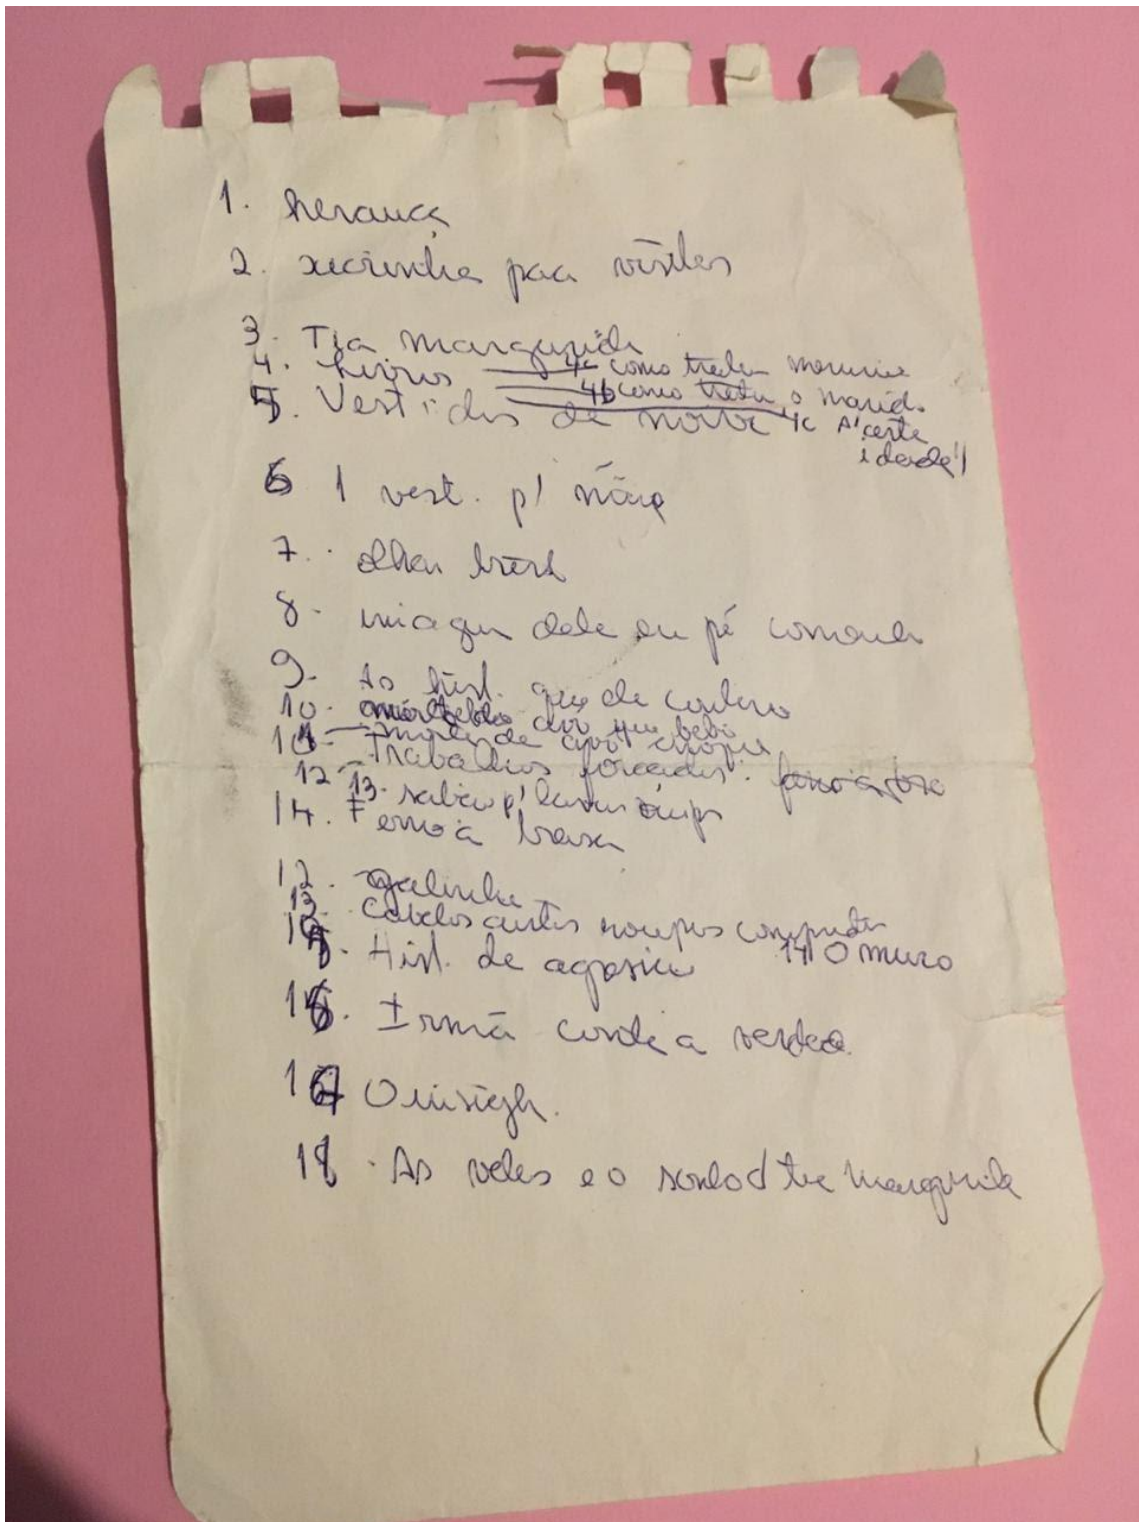 1. herança
2. xicrinha para visitas
3. Tia Margarida
4. Livros 4a como tratar menino
4b como tratar o marido
5. Vestidos de noiva 4c A certa
idade"
6 1 vest. p/
7. olhar triste
8. imagem dele em pé comendo
9. As hist. que ele contava
10. avó que bebê
11 - morte de avó
12 - Trabalhos forçados:
13. sabão p/ lavar roupa
14. Ferro a brasa
12. galinha
13. Cabelos curtos roupas compridas
Hist. de 14 O muro
Irmã conde a verdade.
O
18. As velas e o sonho d tia Margarida